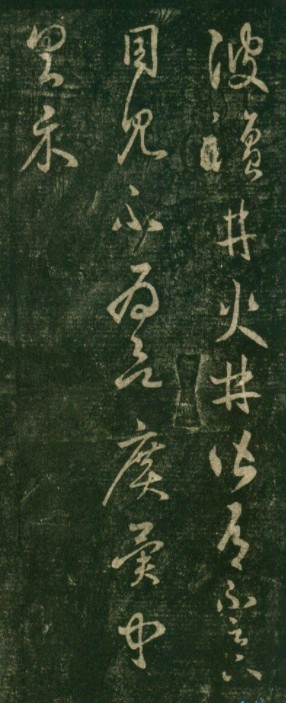 彼鹽井火井皆有不足下
目見不為欲廣異聞
具示